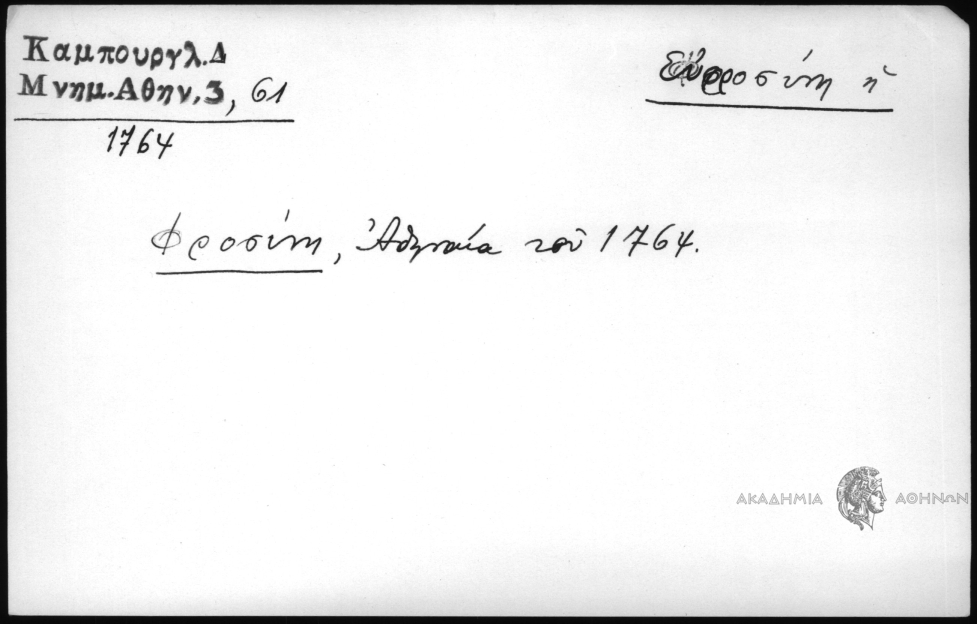 Καμπουργλ.Δ
Μνημ.Αθην.3, 61
1764
Εὐφροσύνη ἡ
Φροσύνη, Ἀθηναία τοῦ 1764.
ΑΚΑΔΗΜΙΑ ΑΘΗΝΩΝ